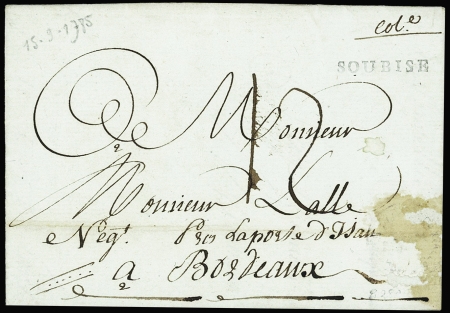 15-9-1785
Col.e
SOUBISE
A Monsieur
12
Monsieur Lalle
Neg.t près Laporte d'Isau
a Bordeaux